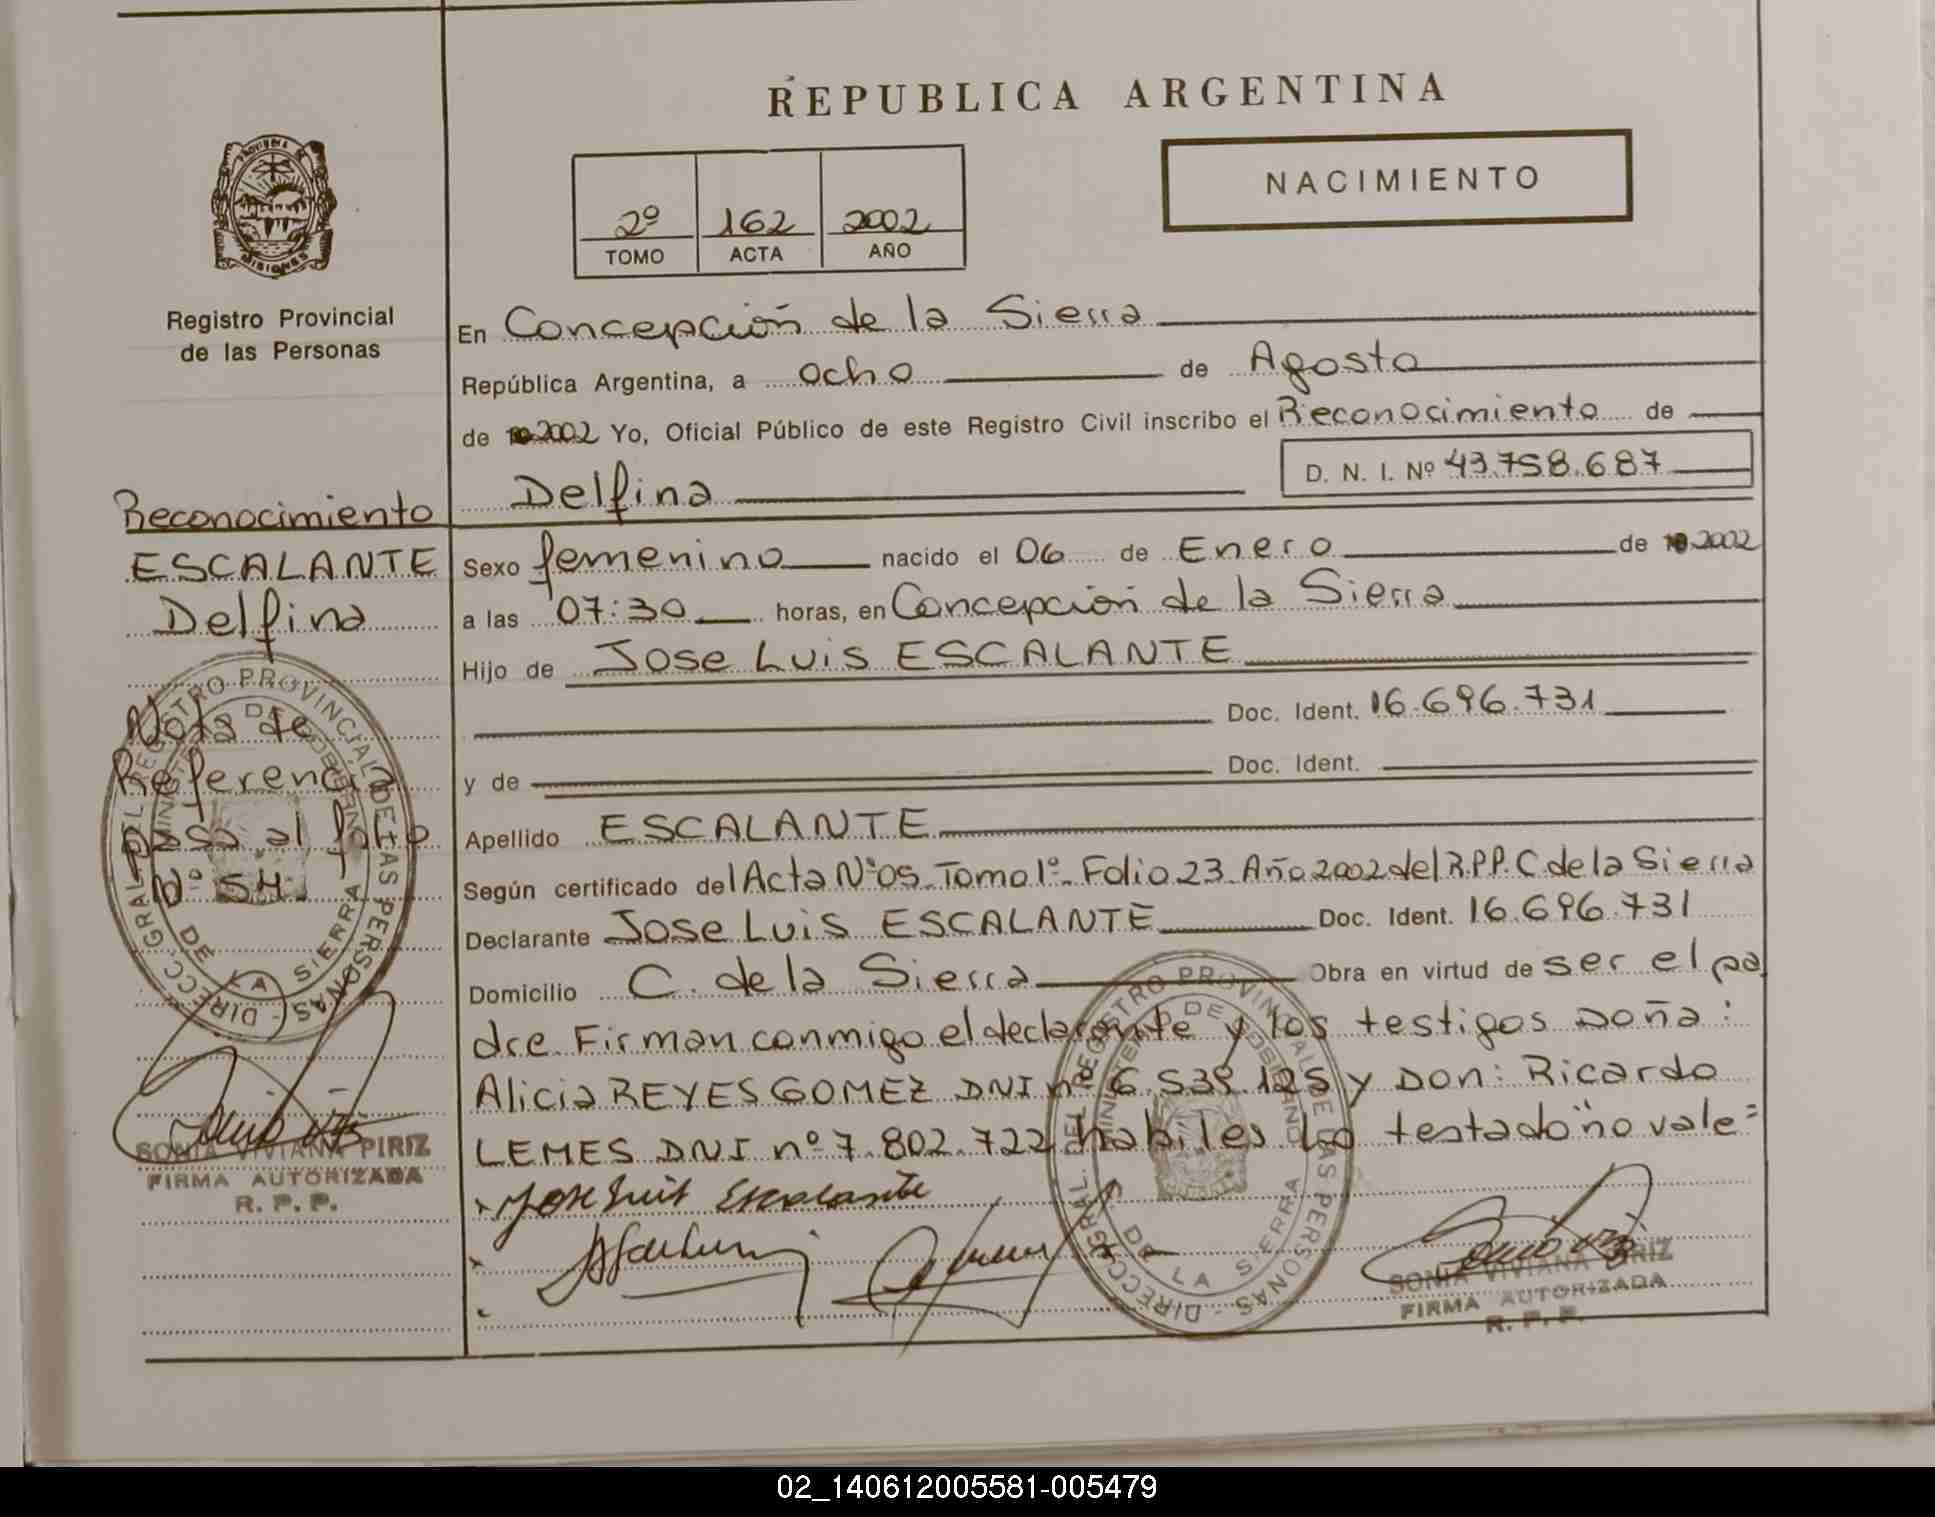 REPUBLICA ARGENTINA
NACIMIENTO
2º 162 2002
TOMO ACTA AÑO
PROVINCIA DE
MISIONES
Registro Provincial
de las Personas
En Concepción de la Sierra
República Argentina, a ocho de Agosto
de 2002 Yo, Oficial Público de este Registro Civil inscribo el Reconocimiento de
Delfina D. N. I. Nº 43.758.687
Reconocimiento
ESCALANTE
Delfina
Nota de
Referencia
pasa al folio
Nº 54.
Sexo femenino nacido el 06 de Enero de 2002
a las 07:30 horas, en Concepción de la Sierra
Hijo de Jose Luis ESCALANTE
Doc. Ident. 16.696.731
y de Doc. Ident.
Apellido ESCALANTE
Según certificado del Acta Nº05. Tomo 1º. Folio 23. Año 2002 del R.P.P. C de la Sierra
Declarante Jose Luis ESCALANTE Doc. Ident. 16.696.731
Domicilio C. de la Sierra Obra en virtud de ser el pa
dre. Firman conmigo el declarante y los testigos Doña:
Alicia REYES GOMEZ DNI nº 6.539.125 y Don: Ricardo
LEMES DNI nº 7.802.722 habiles Lo testado "no vale=
Jose Luis Escalante
DIRECC. GRAL. DEL REGISTRO PROVINCIAL DE LAS PERSONAS
DE LA SIERRA
SONIA VIVIANA PIRIZ
FIRMA AUTORIZADA
R. P. P.
DIRECC. GRAL. DEL REGISTRO PROVINCIAL DE LAS PERSONAS
MINISTERIO DE GOBIERNO
DE LA SIERRA
SONIA VIVIANA PIRIZ
FIRMA AUTORIZADA
R. P. P.
02_140612005581-005479